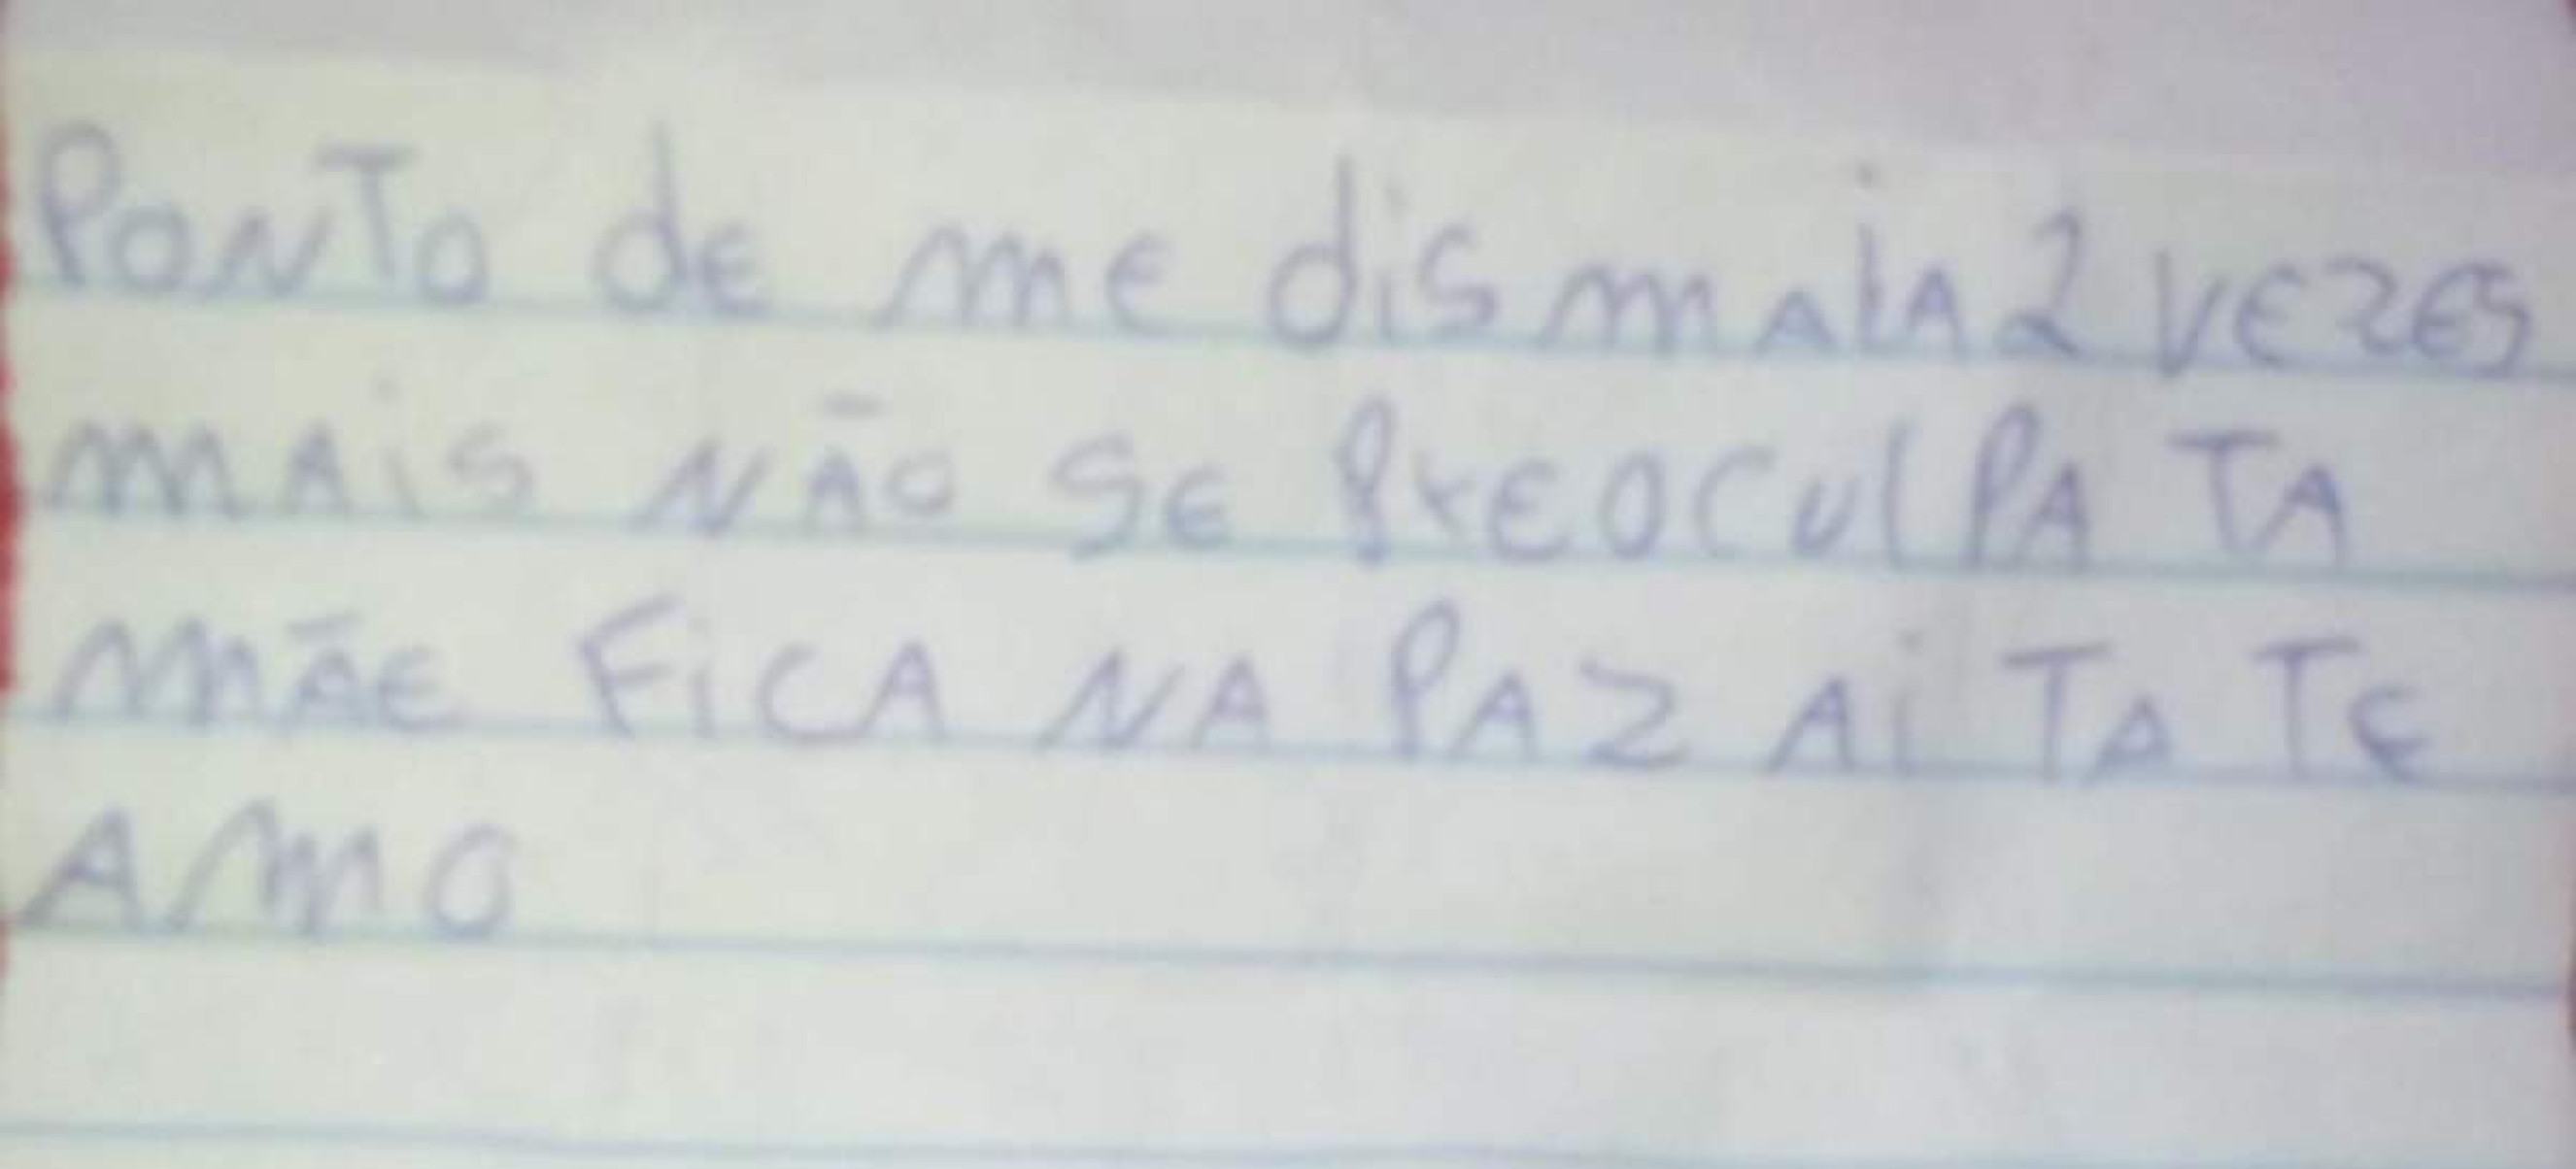 Ponto de me dismaia 2 vezes
mais não se preoculpa ta
mãe fica na paz ai ta te
amo